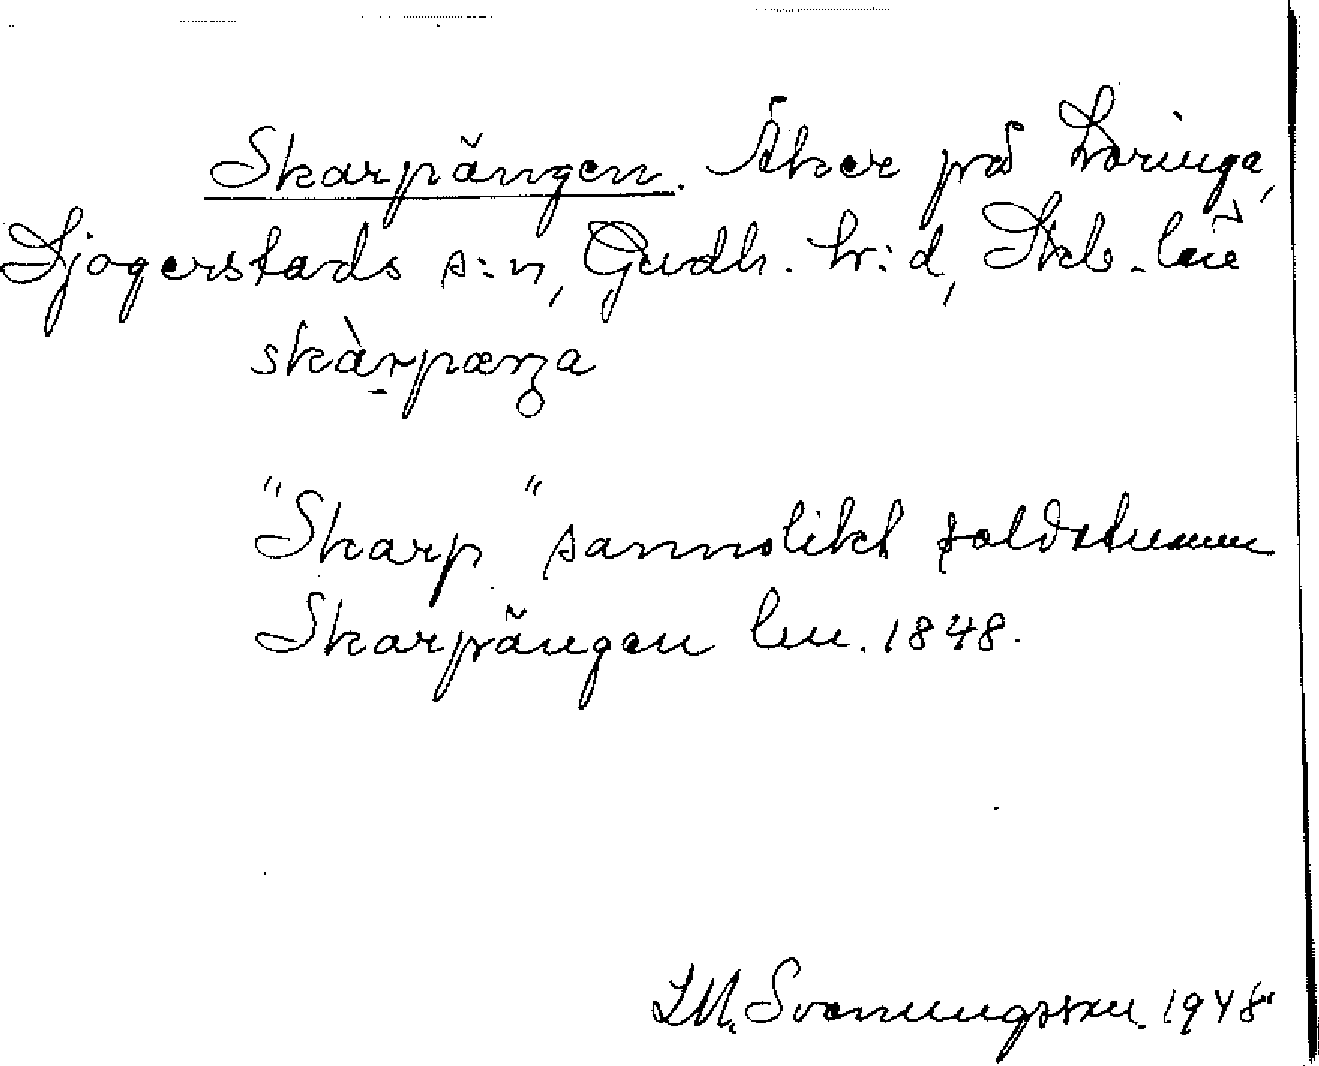 Skarpängen. Åker på Loringa,
Sjogerstads s:n, Gudh. hr:d, Skb. län
skàrpæŋa
"Skarp" sannolikt soldatnamn
Skarpängen lm. 1848.
I.M. Svenungsson. 1948